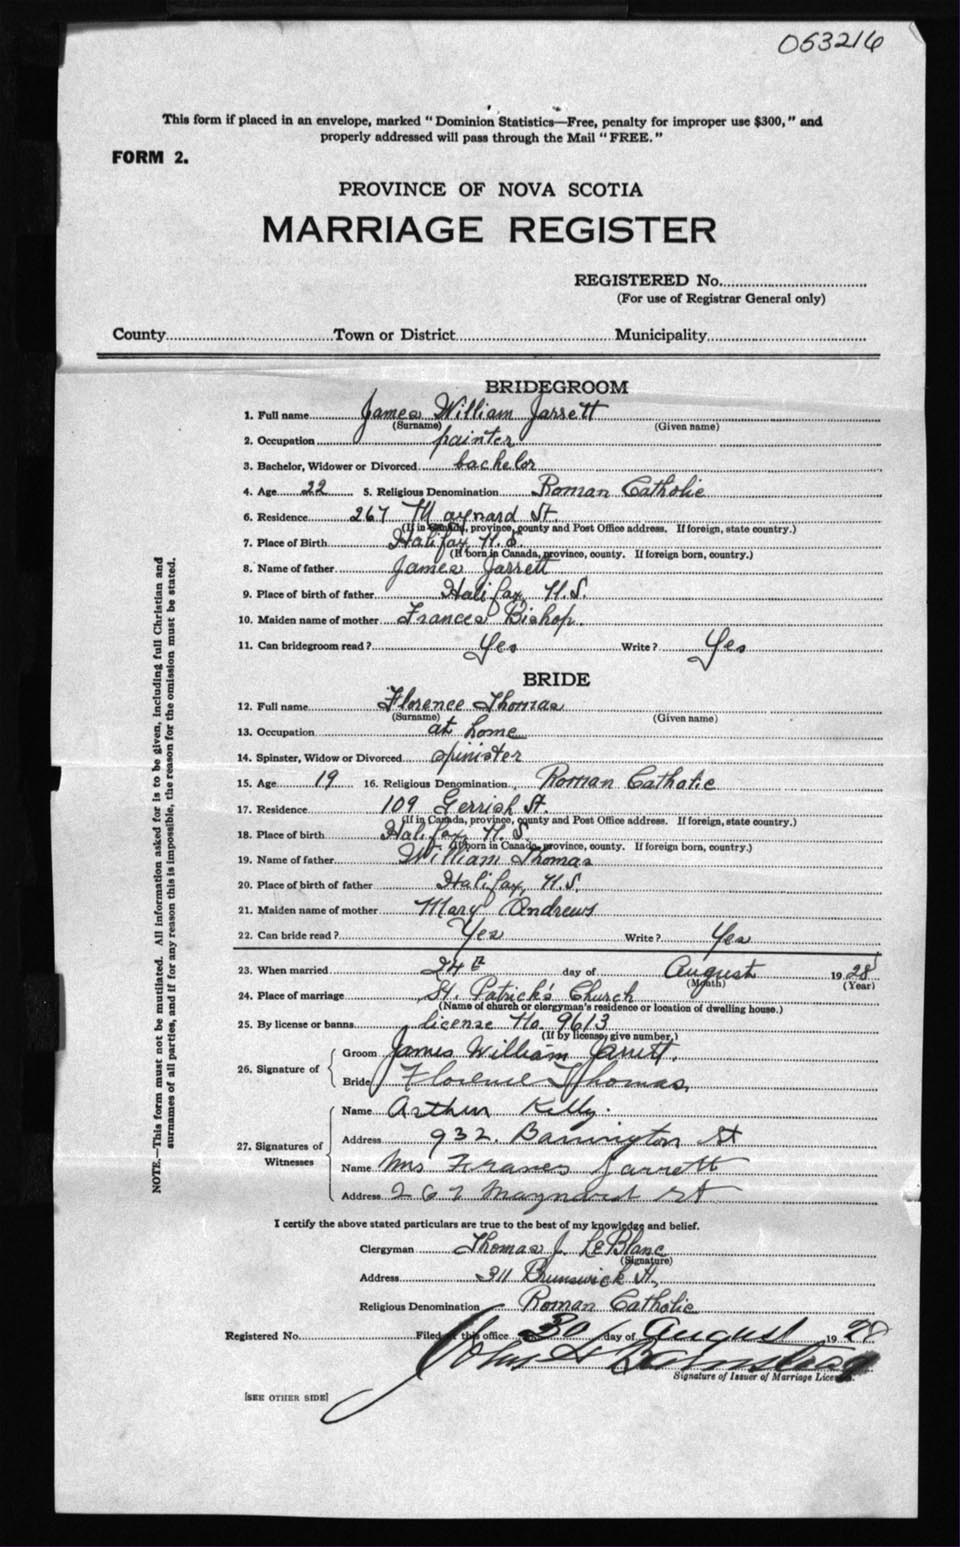 063216
This form if placed in an envelope, marked "Dominion Statistics—Free, penalty for improper use $300," and
properly addressed will pass through the Mail "FREE."
FORM 2.
PROVINCE OF NOVA SCOTIA
MARRIAGE REGISTER
REGISTERED No.
(For use of Registrar General only)
County Town or District Municipality
BRIDEGROOM
1. Full name James William Jarrett
(Surname) (Given name)
2. Occupation painter
3. Bachelor, Widower or Divorced bachelor
4. Age 22 5. Religious Denomination Roman Catholic
6. Residence 267 Maynard St.
(If in Canada, province, county and Post Office address. If foreign, state country.)
7. Place of Birth Halifax N.S.
(If born in Canada, province, county. If foreign born, country.)
8. Name of father James Jarrett
9. Place of birth of father Halifax, N.S.
10. Maiden name of mother Frances Bishop.
11. Can bridegroom read? Yes Write? Yes
BRIDE
12. Full name Florence Thomas
(Surname) (Given name)
13. Occupation at home
14. Spinster, Widow or Divorced spinster
15. Age 19 16. Religious Denomination Roman Catholic
17. Residence 109 Gerrish St.
(If in Canada, province, county and Post Office address. If foreign, state country.)
18. Place of birth Halifax, N.S.
(If born in Canada, province, county. If foreign born, country.)
19. Name of father William Thomas
20. Place of birth of father Halifax, N.S.
21. Maiden name of mother Mary Andrews
22. Can bride read? Yes Write? Yes
23. When married 24th day of August 1928
(Month) (Year)
24. Place of marriage St. Patrick's Church
(Name of church or clergyman's residence or location of dwelling house.)
25. By license or banns license No. 9613
(If by license, give number.)
26. Signature of
Groom James William Jarrett.
Bride Florence Thomas
27. Signatures of Witnesses
Name Arthur Kelly.
Address 932 Barrington St
Name Mrs Frances Jarrett
Address 267 Maynard St
I certify the above stated particulars are true to the best of my knowledge and belief.
Clergyman Thomas J. LeBlanc
(Signature)
Address 311 Brunswick St.,
Religious Denomination Roman Catholic
Registered No. Filed at this office 30 day of August 1928
John
Signature of Issuer of Marriage License.
[SEE OTHER SIDE]
NOTE.—This form must not be mutilated. All information asked for is to be given, including full Christian and
surnames of all parties, and if for any reason this is impossible, the reason for the omission must be stated.